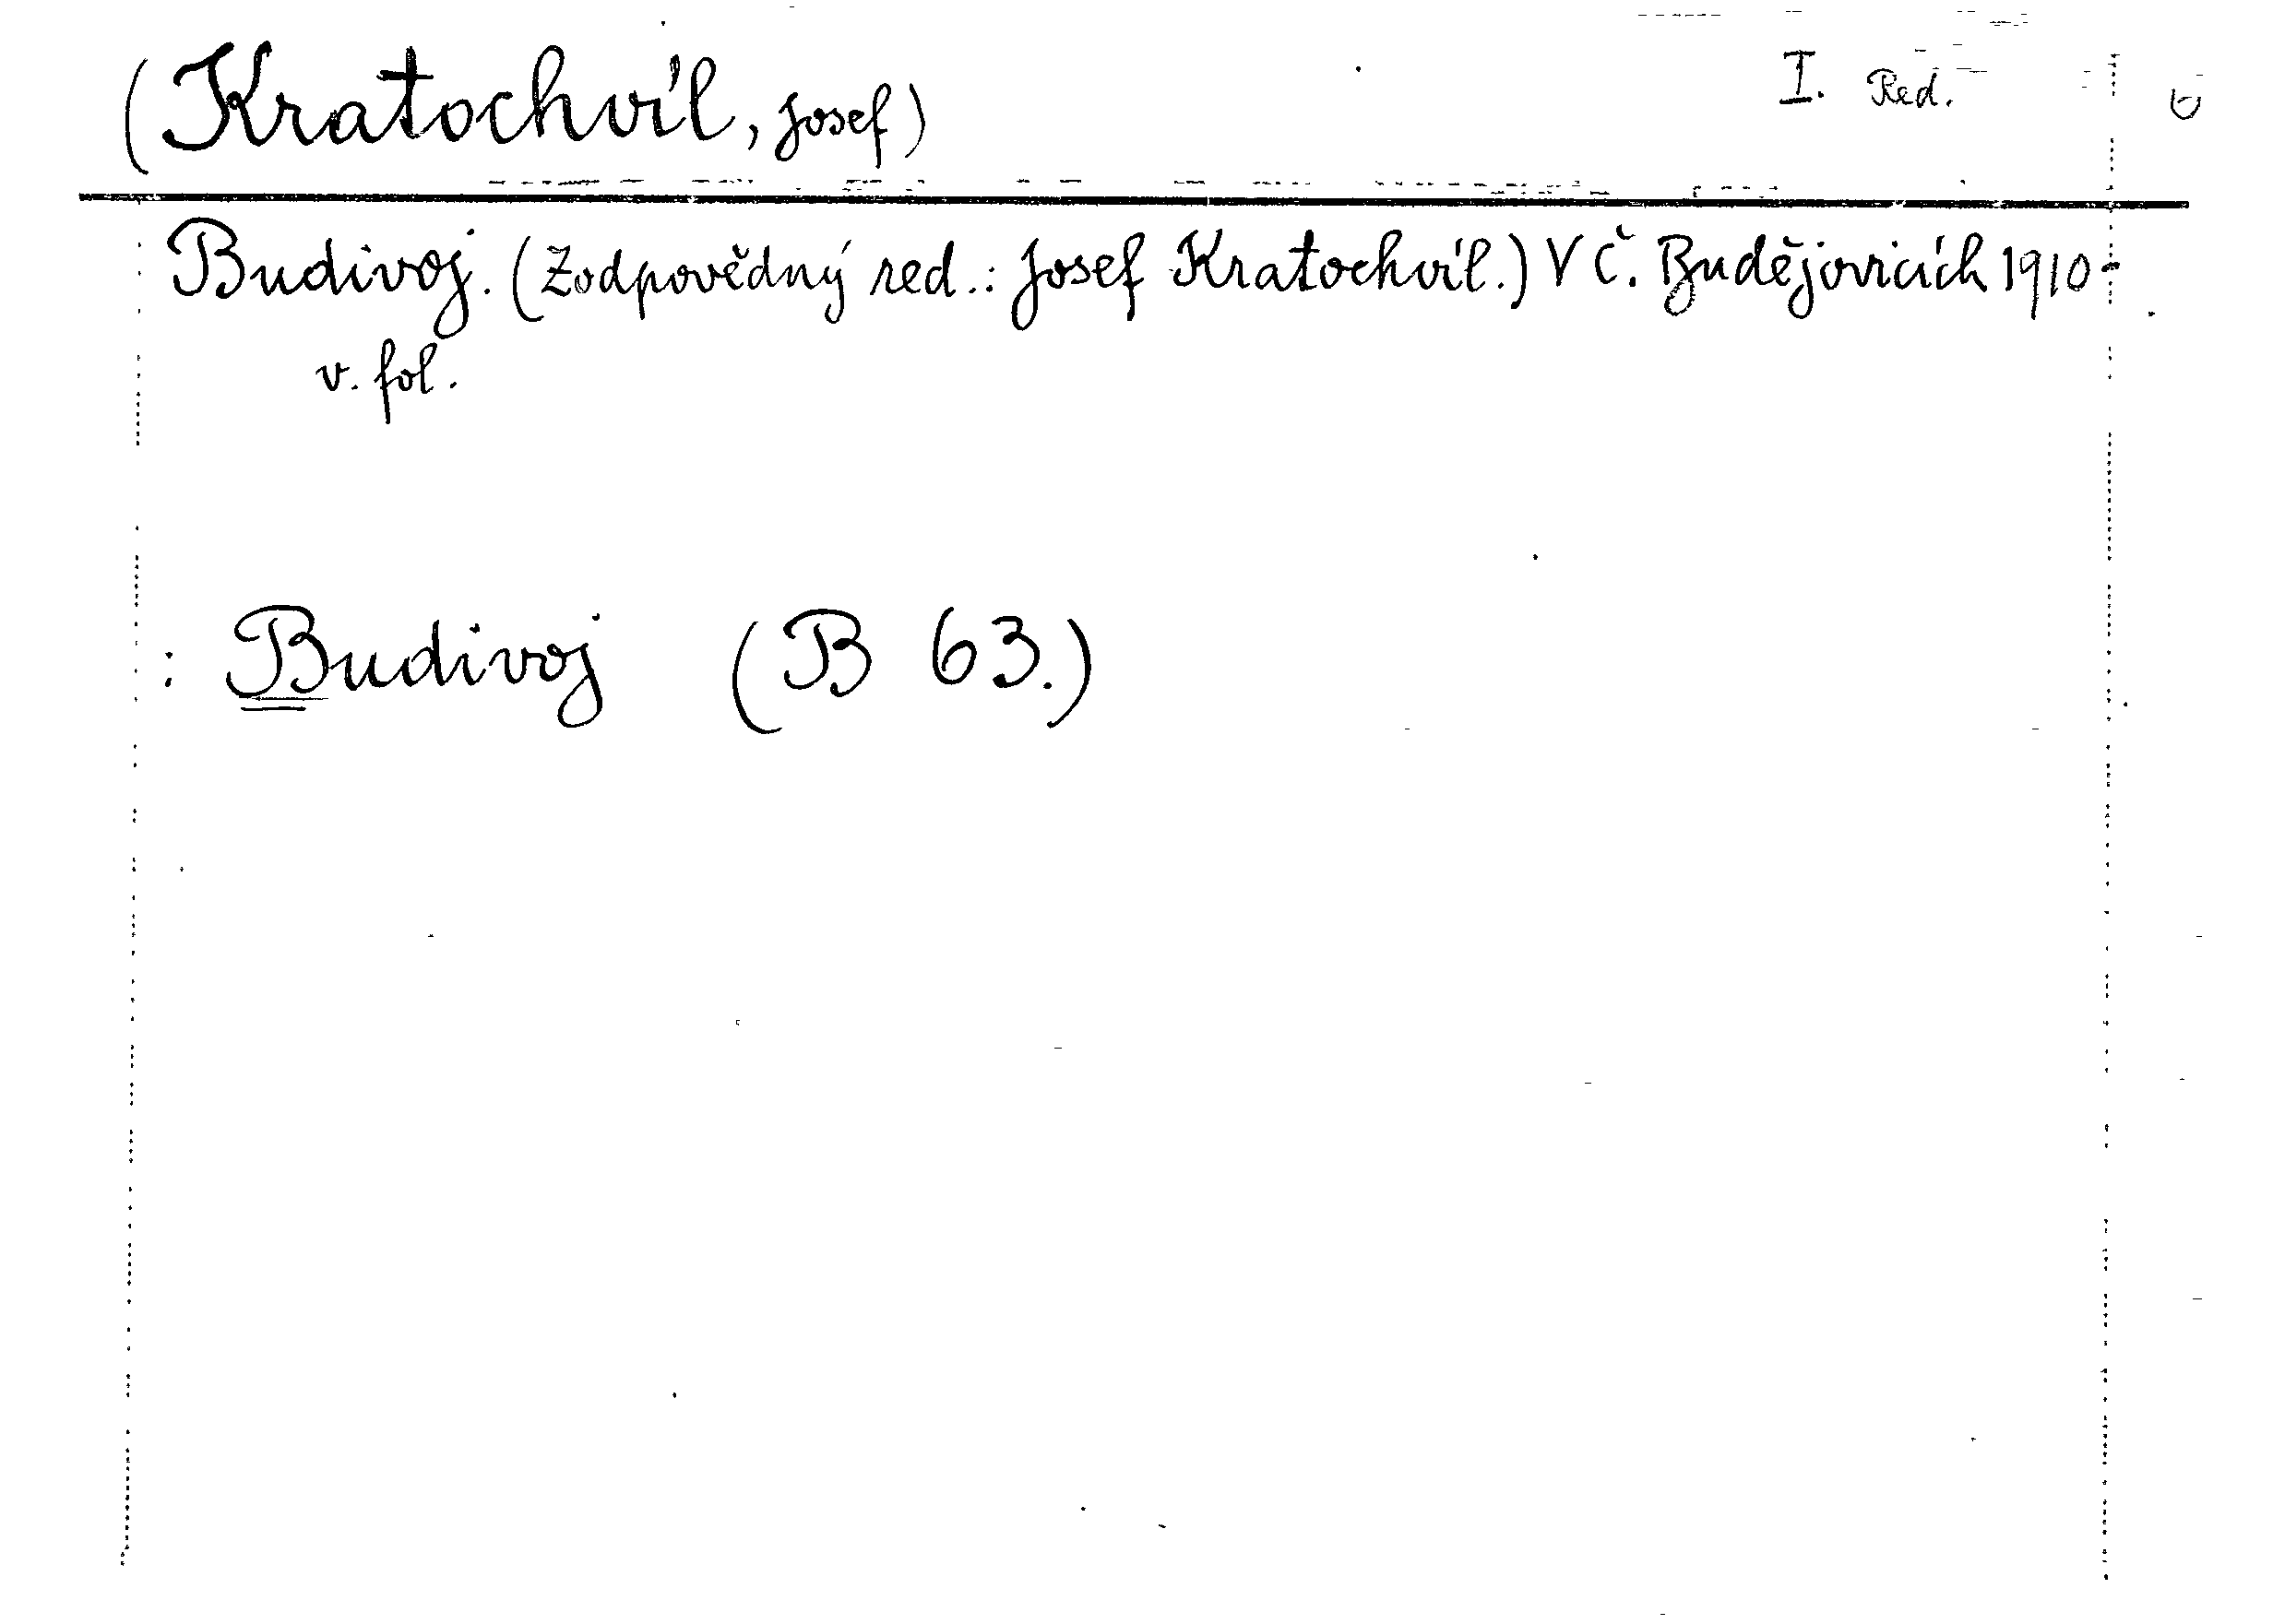 (Kratochvíl, Josef) I. Red.
Budivoj. (Zodpovědný red.: Josef Kratochvíl.) V Č. Budějovicích 1910-
v. fol.
: Budivoj (B 63.)